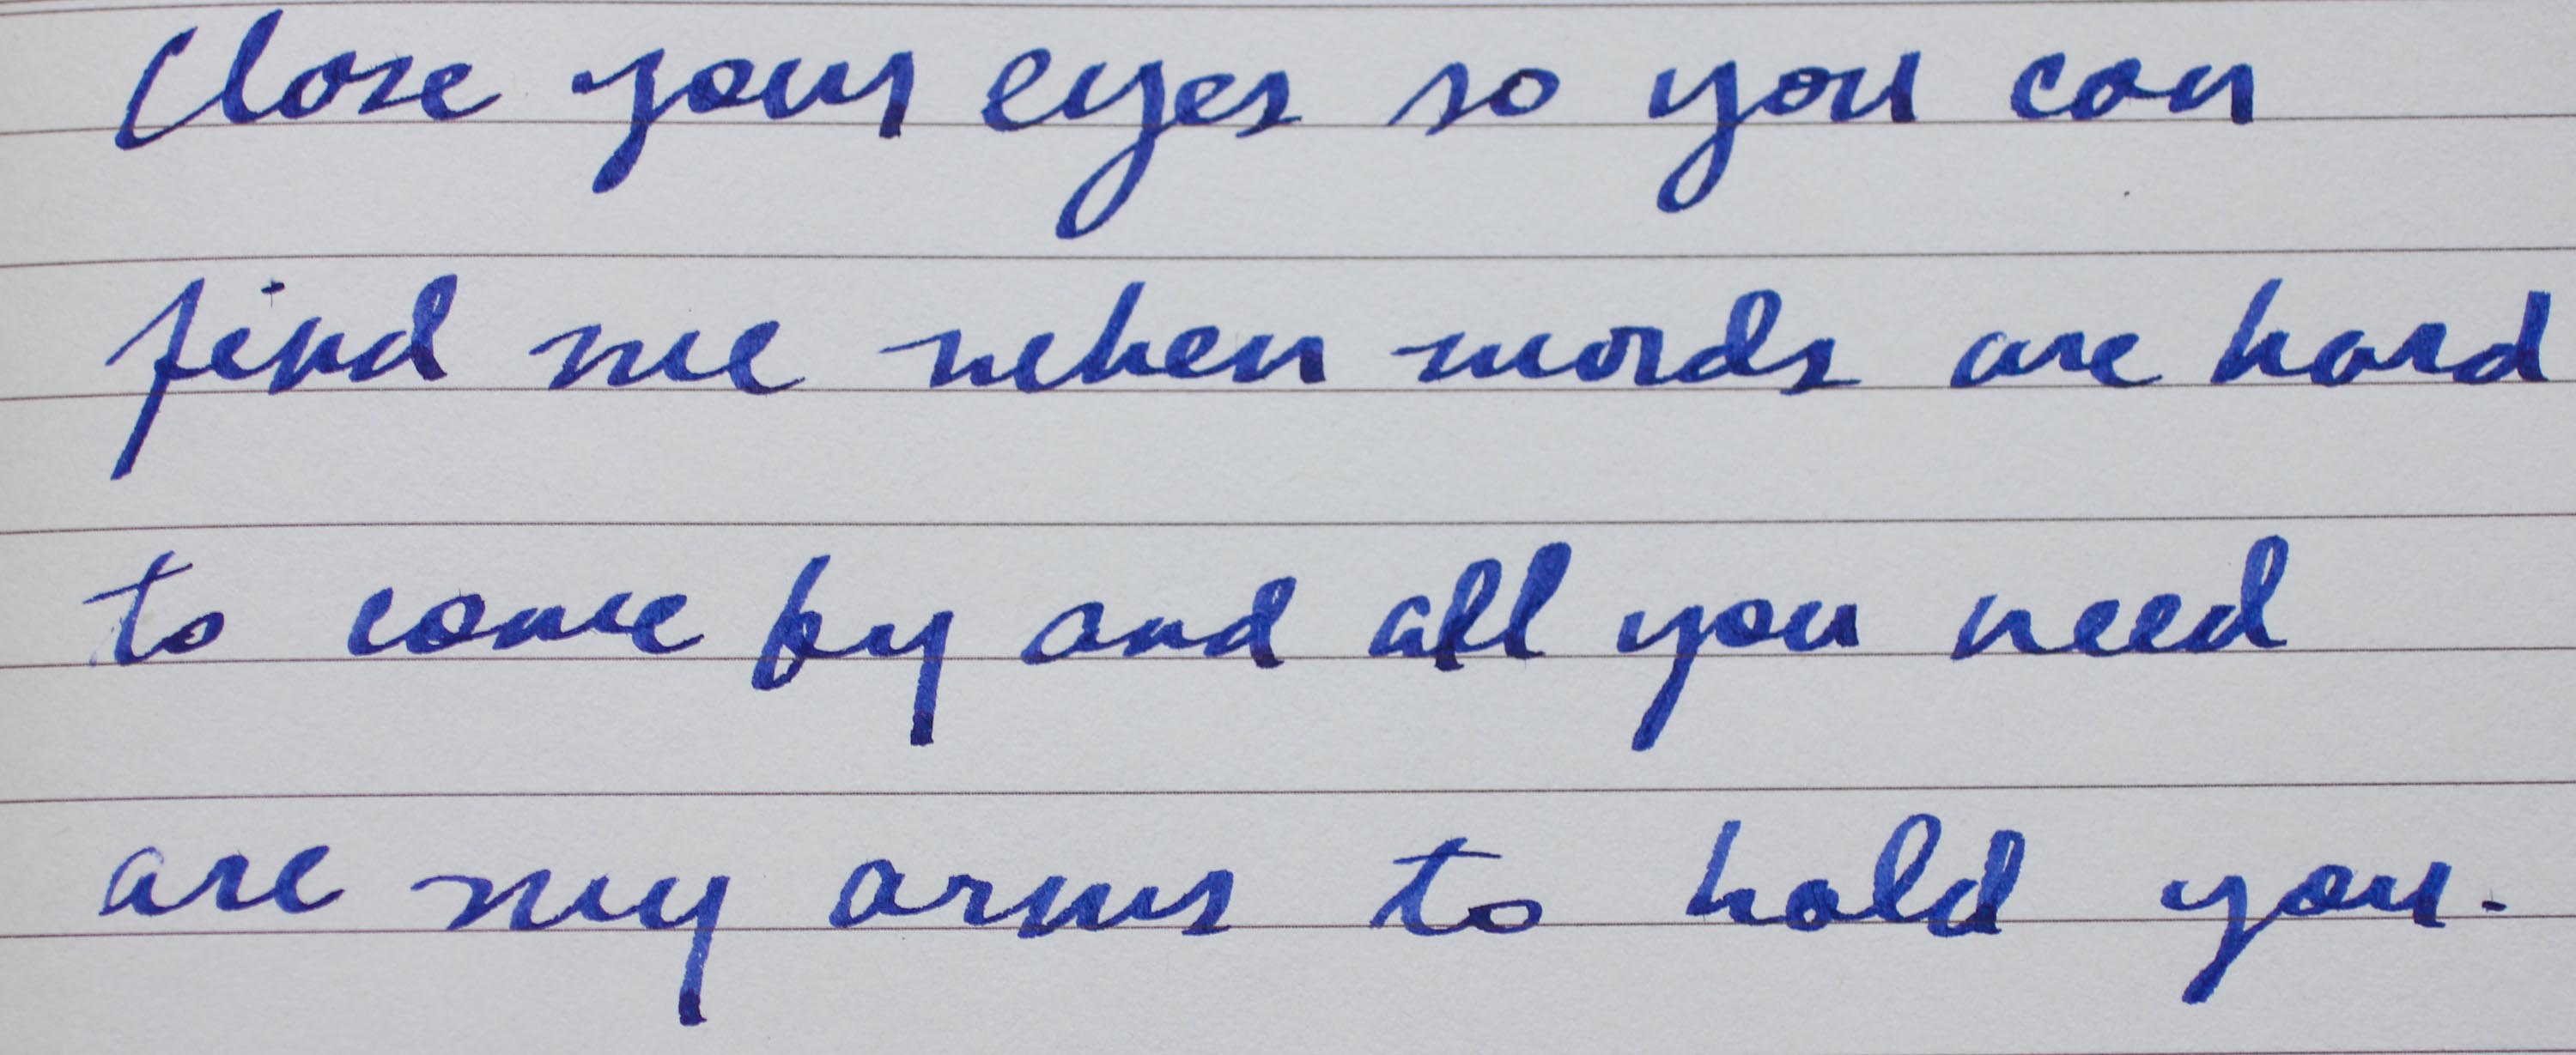 Close your eyes so you can
find me when words are hard
to come by and all you need
are my arms to hold you.